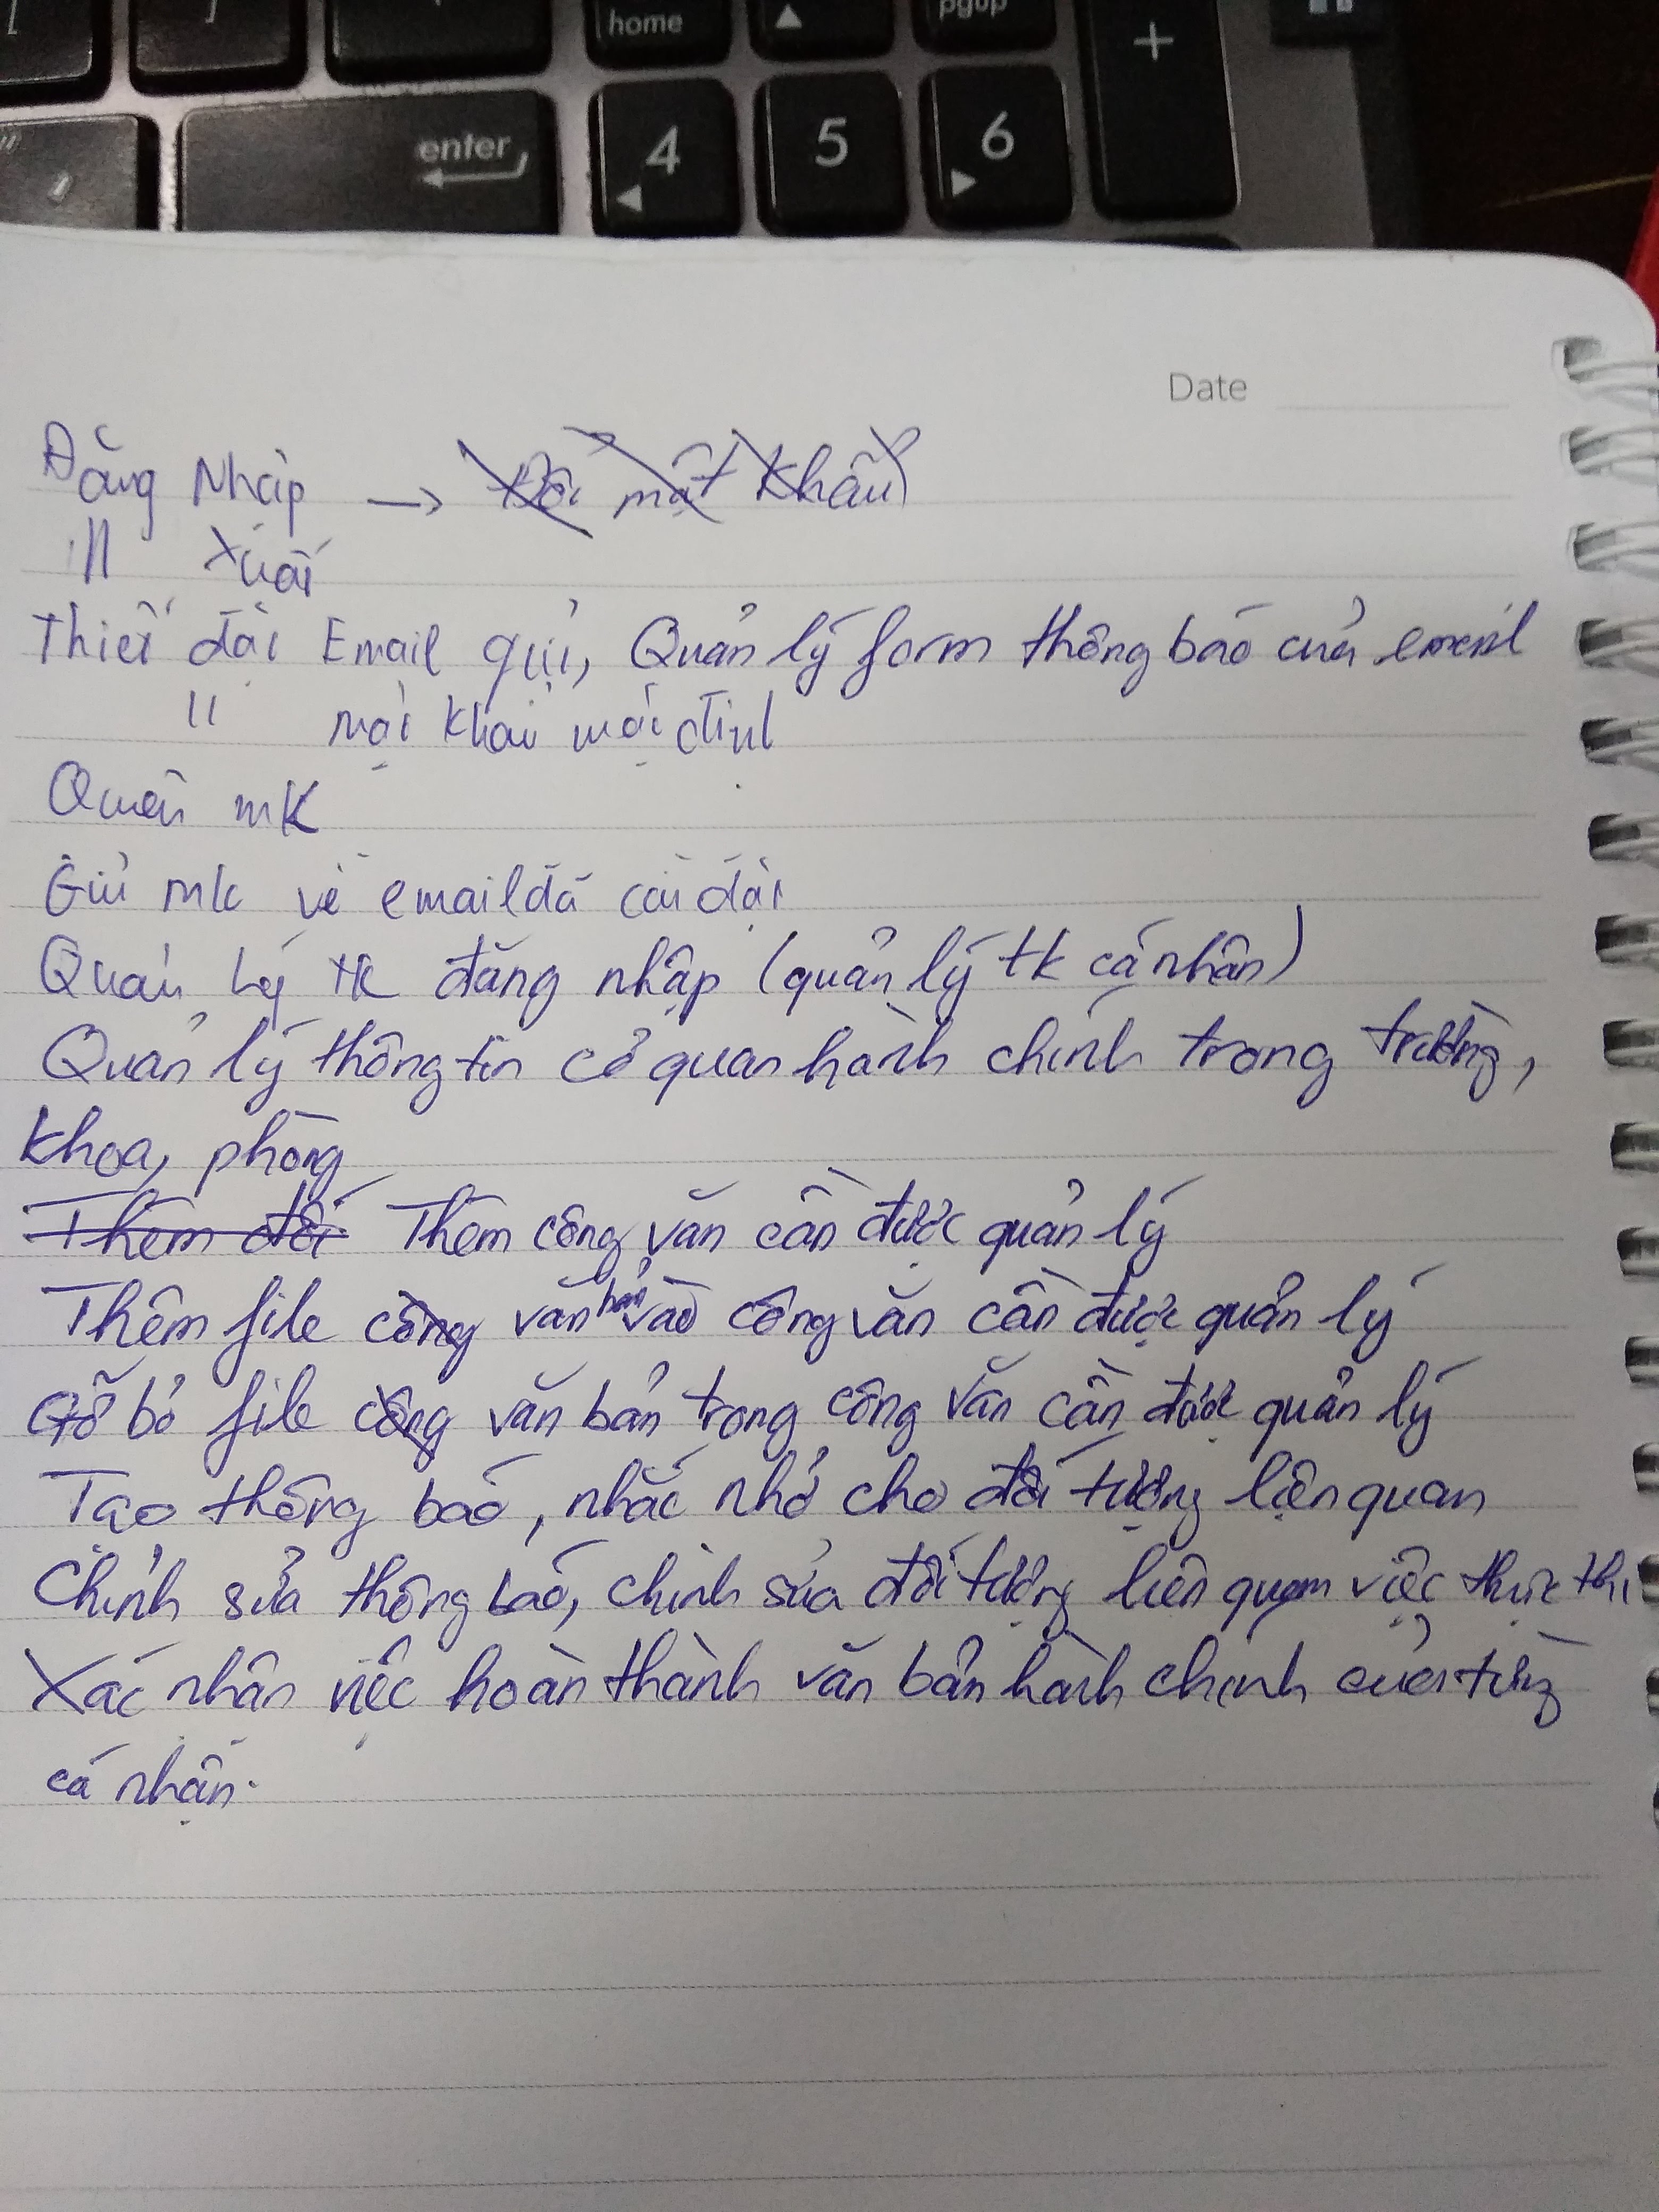 home
pgup
+
enter
4
5
6
Date
Đăng Nhập → Đổi mật khẩu
" Xuất
Thiết đặt Email gửi, Quản lý form thông báo của email
" mật khẩu mặc định
Quên mk
Gửi mk về email đã cài đặt
Quản lý tk đăng nhập (quản lý tk cá nhân)
Quản lý thông tin cơ quan hành chính trong trường,
khoa, phòng
Thêm đối Thêm công văn cần được quản lý
Thêm file công văn bản vào công văn cần được quản lý
Gỡ bỏ file công văn bản trong công văn cần được quản lý
Tạo thông báo, nhắc nhở cho đối tượng liên quan
Chỉnh sửa thông báo, chỉnh sửa đối tượng liên quan việc thực thi
Xác nhận việc hoàn thành văn bản hành chính của từng
cá nhận.